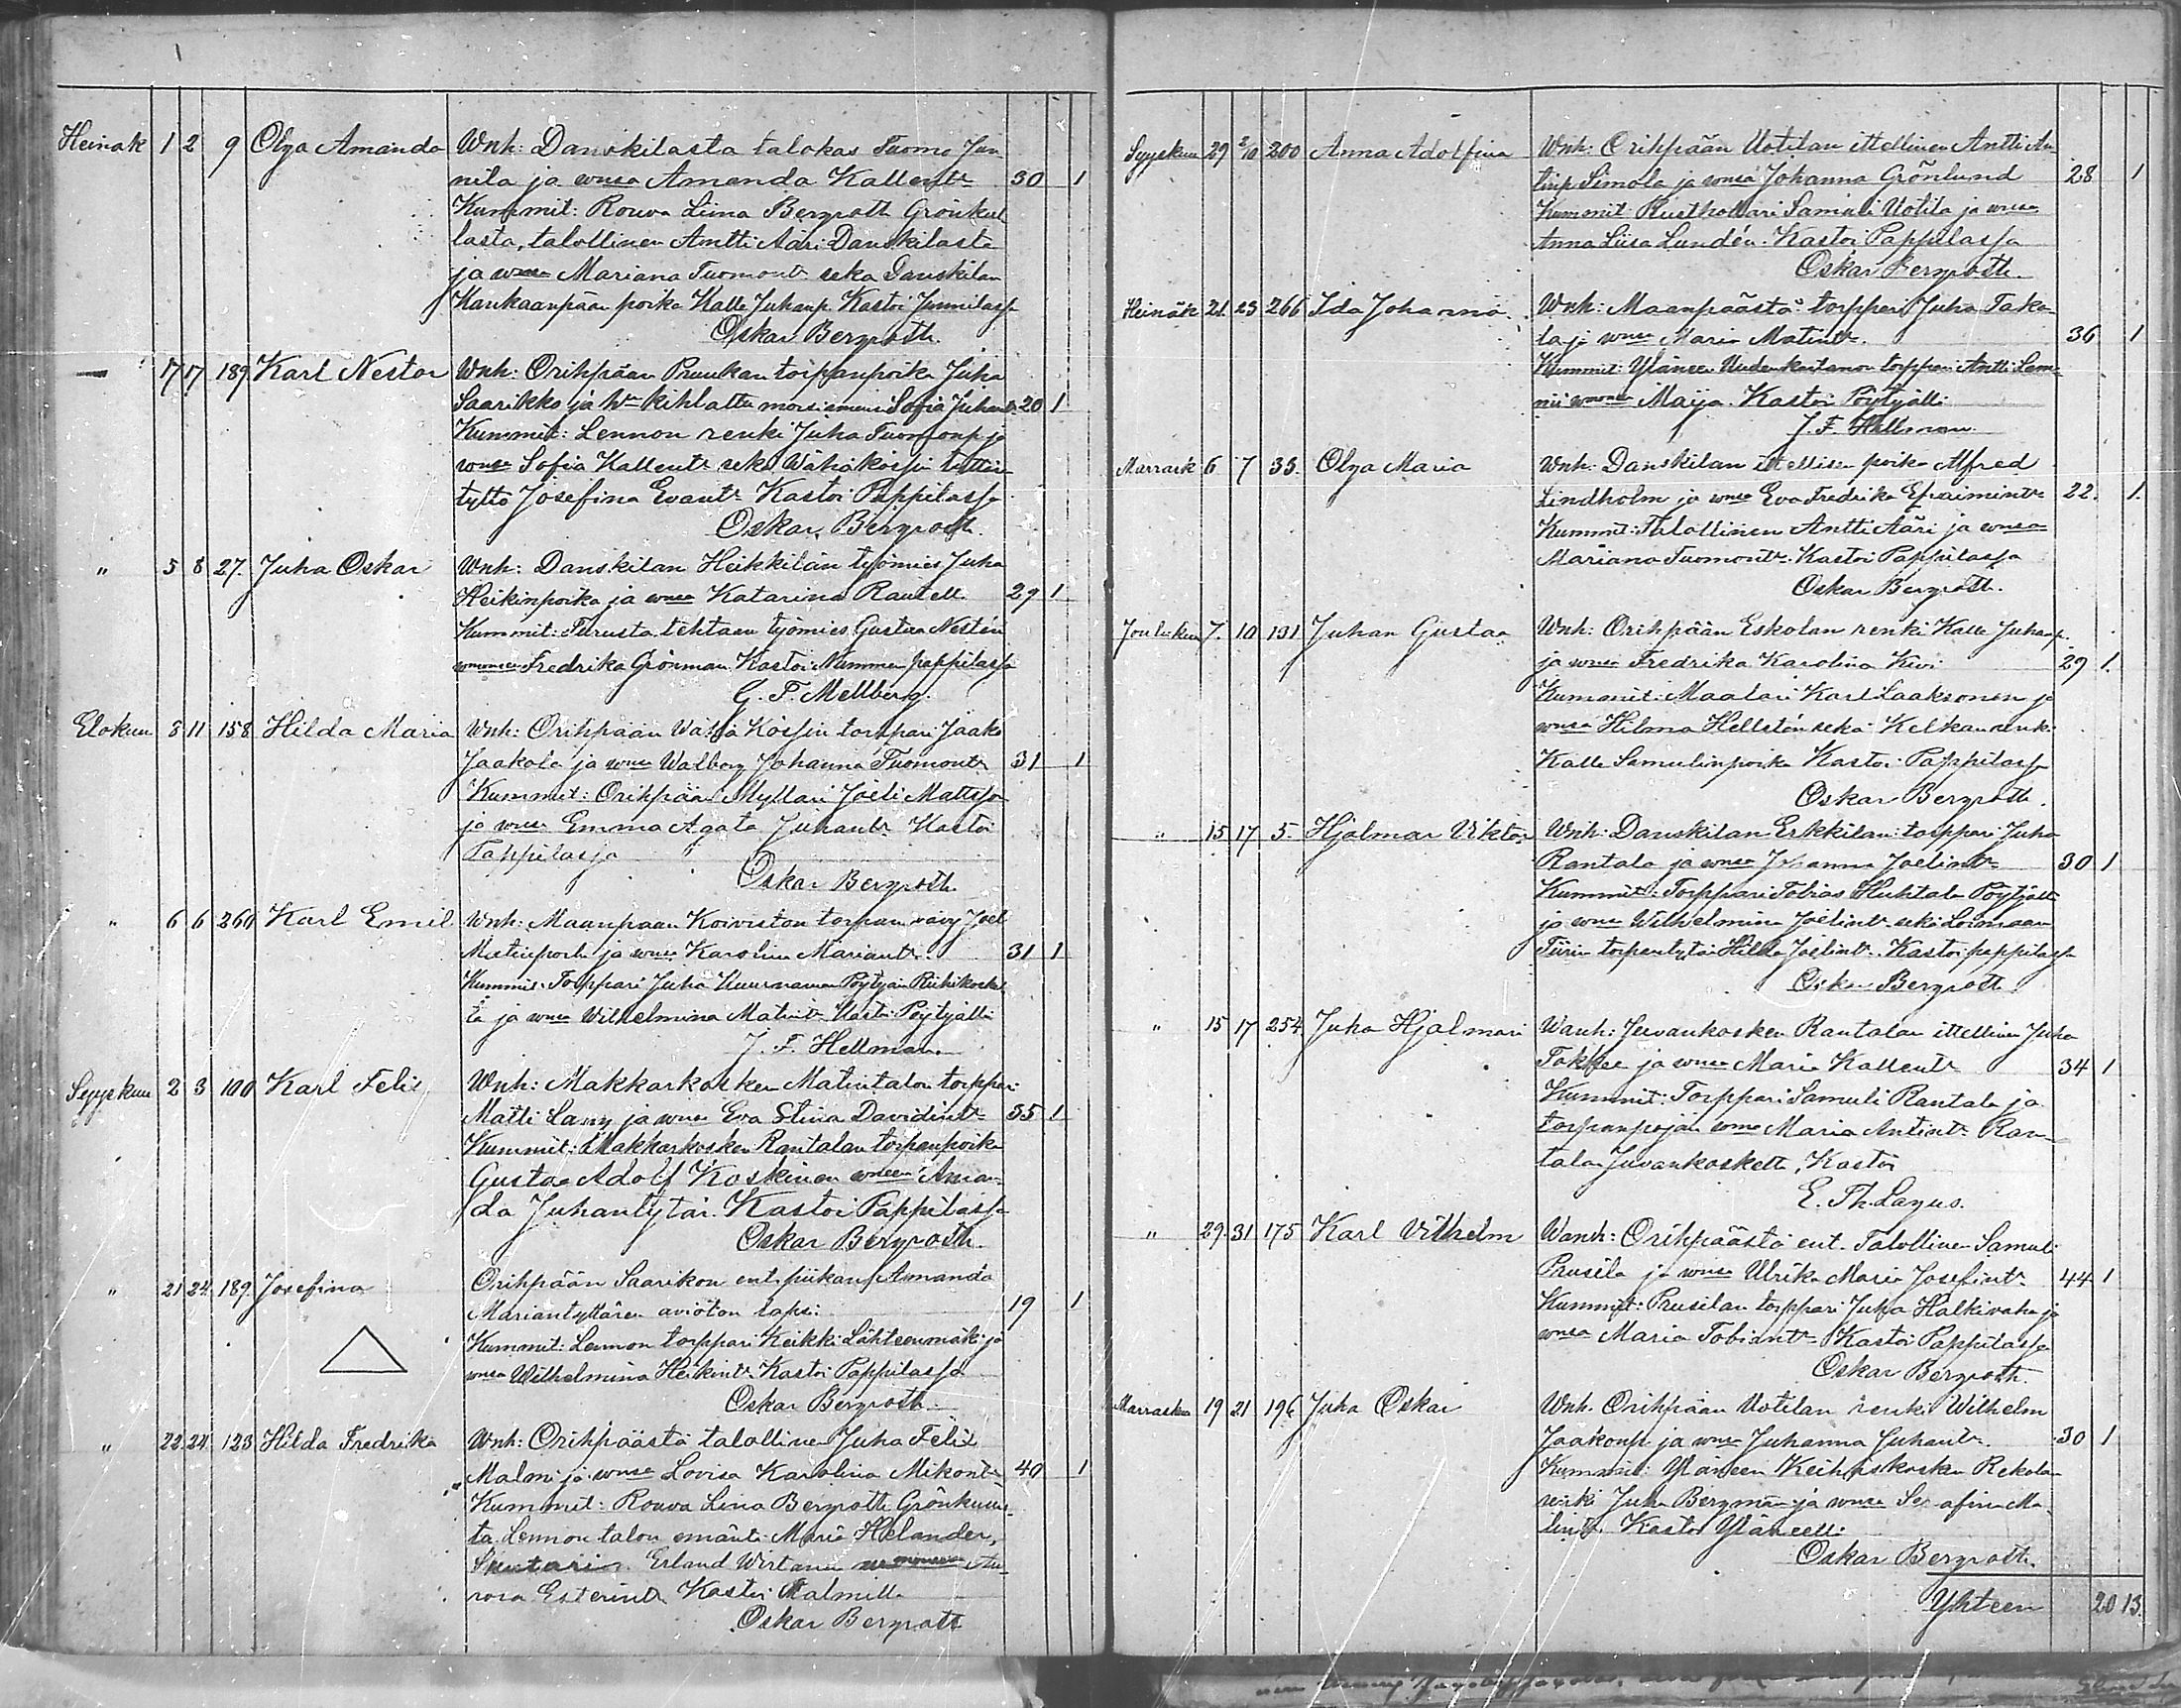 Heinäk 1 2 9 Olga Amanda Wnh: Danskilasta talokas Tuomo Jun
nila ja wmsa Amanda Kallentr 30 1
Kummit: Rouva Liina Bergroth Grönkul
lasta, talollinen Antti Ääri Danskilasta
ja wmsa Mariana Tuomontr sekä Danskilan
Kankaanpään poika Kalle Juhanp. Kastoi Junnilassa
Oskar Bergroth.
— 17 17 189 Karl Nestor Wnh: Orihpään Pruukan torpanpoika Juha
Saarikko ja kihlattu morsiamensa Sofia Juhantr 20 1
Kummit: Lennon renki Juha Tuomonp ja
wmsa Sofia Kallentr sekä Wähäkosjin
tyttö Josefina Evantr Kastoi Pappilassa
Oskar Bergroth.
" 5 8 27. Juha Oskar Wnh: Danskilan Heikkilän työmies Juha
Heikinpoika ja wmsa Katarina Rautell. 29 1
Kummit: tehtaan työmies Gustaa Nestén
Fredrika Grönman. Kastoi Nummen pappilassa
G. F. Mellberg.
Elokuu 8 11 158 Hilda Maria Wnh: Orihpään torppari Jaako
Jaakola ja wmsa Walborg Johanna Tuomontr 31 1
Kummit: Orihpään Myllari Joeli Mattsson
ja wmsa Emma Agata Juhantr Kastoi
Pappilassa
Oskar Bergroth
" 6 6 260 Karl Emil Wnh: Maanpään Koiviston torpan vävy Joel
Matinpoika ja wmsa Karolina Mariantr. 31 1
Kummit: Torppari Juha Pöytyän Riihikoskel
ta ja wmsa Wilhelmina Matintr Kastoi Pöytyällä
J. F. Hellman.
Syyskuu 2 3 100 Karl Feliz Wnh: Makkarkosken Matintalon torppari
Matti Lany ja wmsa Eva Stina Davidintr 35 1
Kummit: Makkarkosken Rantalan torpanpoika
Gustaa Adolf Koskinen wmsa Aman
da Juhantytär. Kastoi Pappilassa
Oskar Bergroth.
" 21 24 189. Josefina Orihpään Saarikon ent. piikan Amanda
Mariantyttären avioton lapsi 19 1
Kummit: Lennon torppari Heikki Lähteenmäki ja
wmsa Wilhelmina Heikintr. Kastoi Pappilassa
Oskar Bergroth.
" 22 24 123 Hilda Fredrika Wnh: Orihpäästä talollinen Juha Feliz
Malm ja wmsa Lovisa Karolina Mikontr 40 1
Kummit: Rouva Lina Bergroth
Lennon talon emäntä Maria Helander,
Erland Wirtanen Au
rora Esterintr Kastoi Malmilla
Oskar Bergroth
Syyskuu 29 2/10 200 Anna Adolfina Wnh: Orihpään Uotilan itellinen Antti An
tinp Simola ja wmsa Johanna Grönlund 28 1
Kummit Rusthollari Samuli Uotila ja wmsa
Anna Liisa Lundén. Kastoi Pappilassa
Oskar Bergroth.
Heinäk 21 23 266 Ida Johanna Wnh: Maanpäästä torppari Juha Taka
la ja wmsa Maria Matintr. 36 1
Kummit: Yläneen Uudenkartanon torppari Antti
Maija. Kastoi Pöytyällä
J. F. Hellman.
Marrask 6 7 33. Olga Maria Wnh: Danskilan itellisen poika Alfred
Lindholm ja wmsa Eva Fredrika Efraimintr 22. 1.
Kummit: Talollinen Antti Ääri ja wmsa
Mariana Tuomontr. Kastoi Pappilassa
Oskar Bergroth.
Joulukuu 7. 10 131 Juhan Gustaa Wnh: Orihpään Eskolan renki Kalle Juhanp.
ja wmsa Fredrika Karolina Kivi 29 1.
Kummit: Maalari Karl Laaksonen ja
wmsa Hilma Hellstén sekä Kelkan renki
Kalle Samulinpoika Kastoi Pappilassa
Oskar Bergroth.
" 15 17 5. Hjalmar Viktor Wnh: Danskilan Erkkilän torppari Juha
Rantala ja wmsa Johanna Joelintr 30 1
Kummit: Torppari Tobias Huhtala Pöytyältä
ja wmsa Wilhelmina Joelintr sekä Loimaan
torpantytär Hilda Joelintr. Kastoi pappilassa
Oskar Bergroth.
" 15 17 254 Juha Hjalmari Wanh: Juvankosken Rantalan itellinen Juha
ja wmsa Maria Kallentr 34 1
Kummit: Torppari Samuli Rantala ja
torpanpojan wmo Maria Antintr Ran
talan Juvankoskelta, Kastoi
E. Th. Lagus.
" 29. 31 175 Karl Vilhelm Wanh: Orihpäästä ent. Talollinen Samuli
Prusila ja wmsa Ulrika Maria Josefintr 44 1
Kummit: Prusilan torppari Juha Halkivaha ja
wmsa Maria Tobiantr Kastoi Pappilassa
Oskar Bergroth.
Marraskuu 19 21 196 Juha Oskar Wnh. Orihpään Uotilan renki Wilhelm
Jaakonp ja wmsa Juhanna Juhantr. 30 1
Kummit: Yläneen Keihäskosken Rekolan
renki Juha Bergman ja wmsa Serafina Ma
tintr. Kastoi Yläneellä
Oskar Bergroth.
Yhteen 20 13.